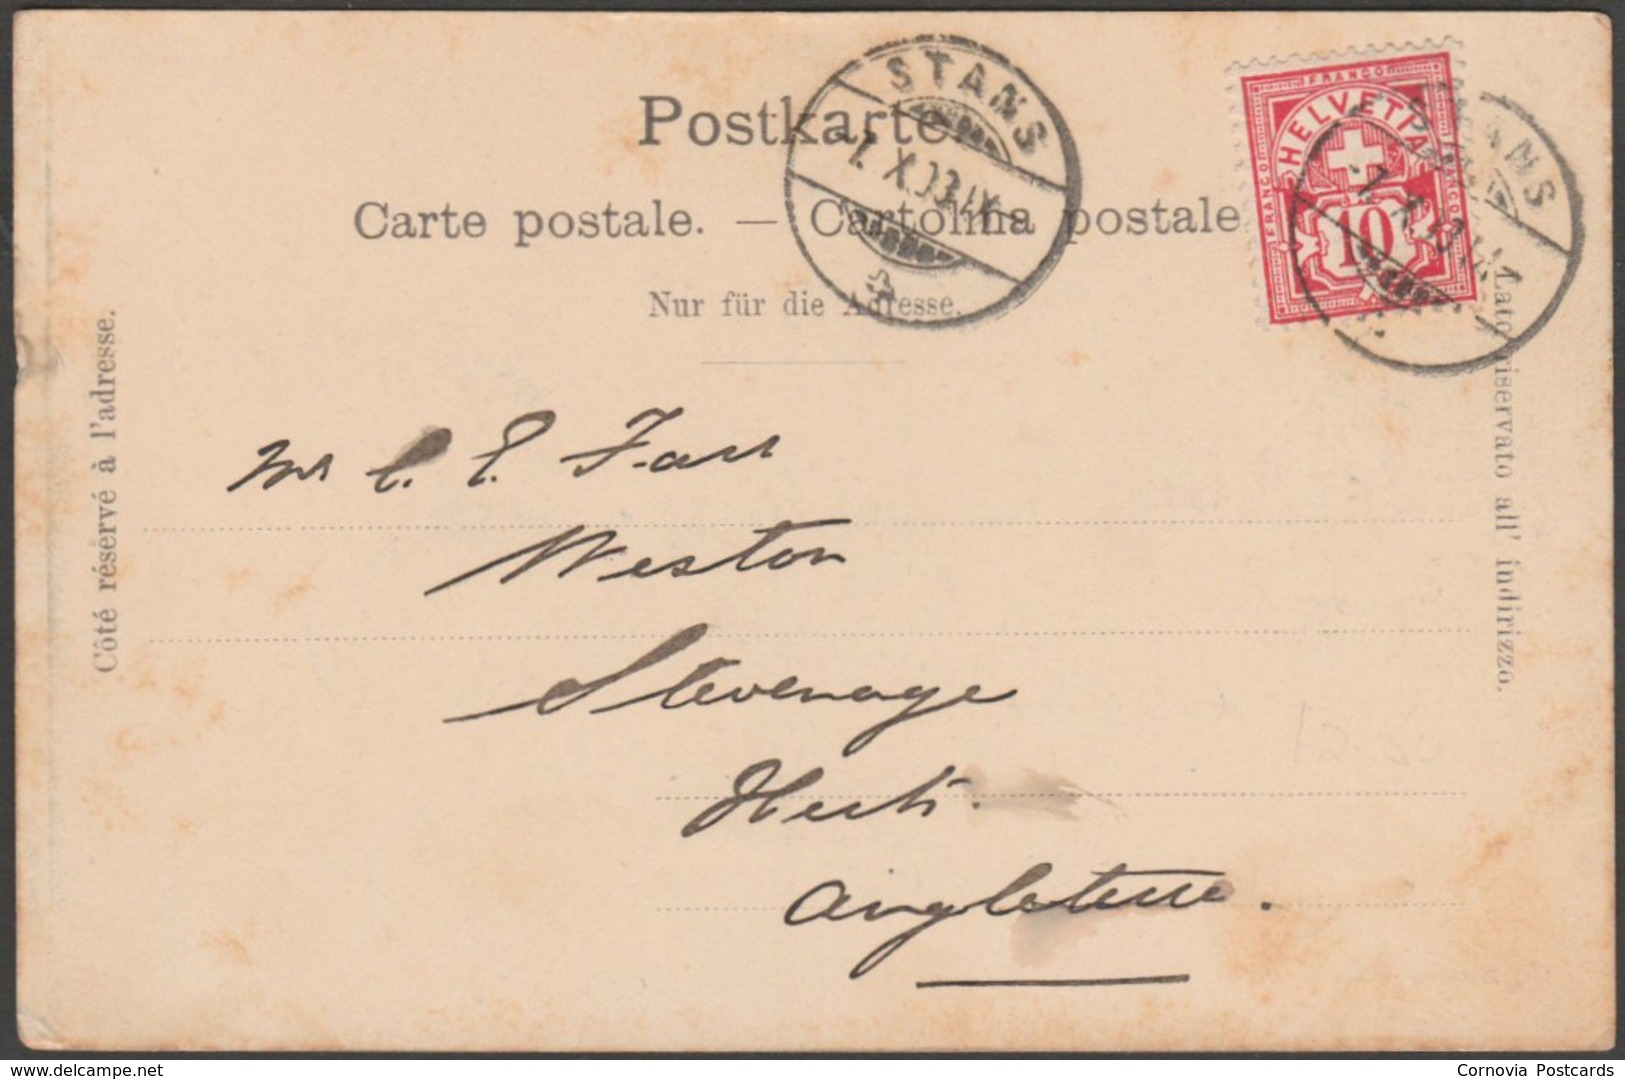 Postkarte
Carte postale. — Cartolina postale
Nur für die Adresse.
STANS
FRANCO
HELVETIA
FRANCO
FRANCO
10
STANS
Côté réservé à l'adresse.
Lato riservato all' indirizzo.
Mr C. E. Farr
Weston
Stevenage
Herts.
Angleterre.
delcampe.net
Cornovia Postcards